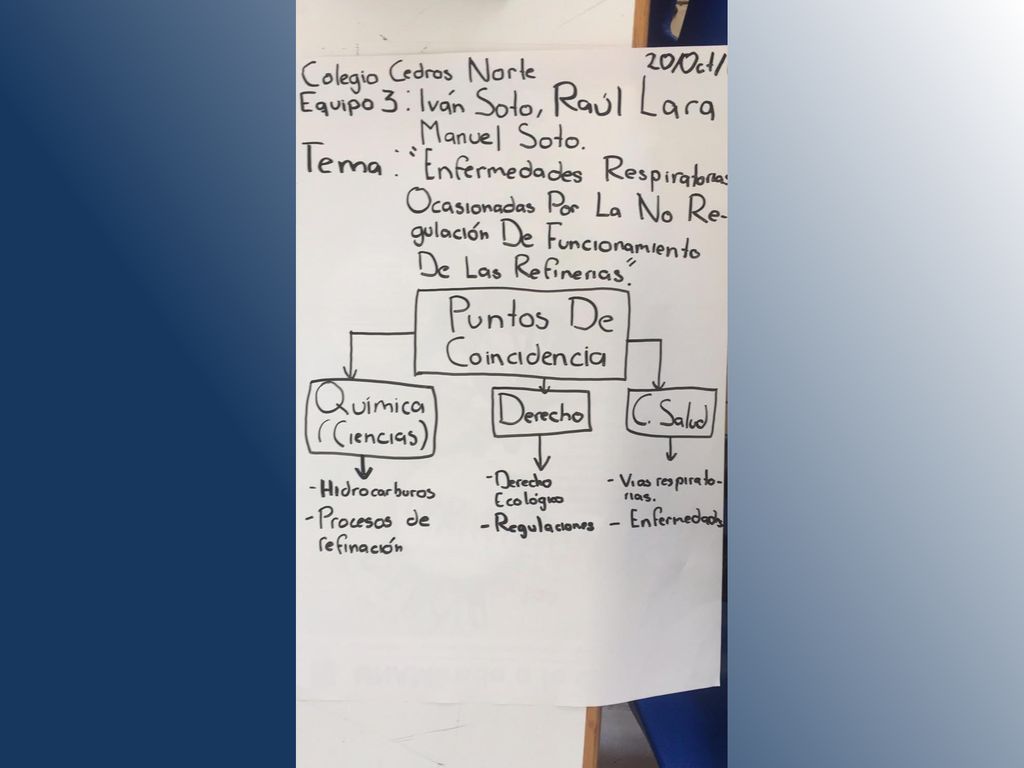 20/Oct/
Colegio Cedros Norte
Equipo 3: Iván Soto, Raúl Lara
Manuel Soto.
Tema: "Enfermedades Respiratorias
Ocasionadas Por La No Re-
gulación De Funcionamiento
De Las Refinerias".
Puntos De
Coincidencia
Química
(Ciencias)
Derecho
C. Salud
- Hidrocarburos
- Procesos de
refinación
- Derecho
Ecológico
- Regulaciones
- Vias respirato-
rias.
- Enfermedades